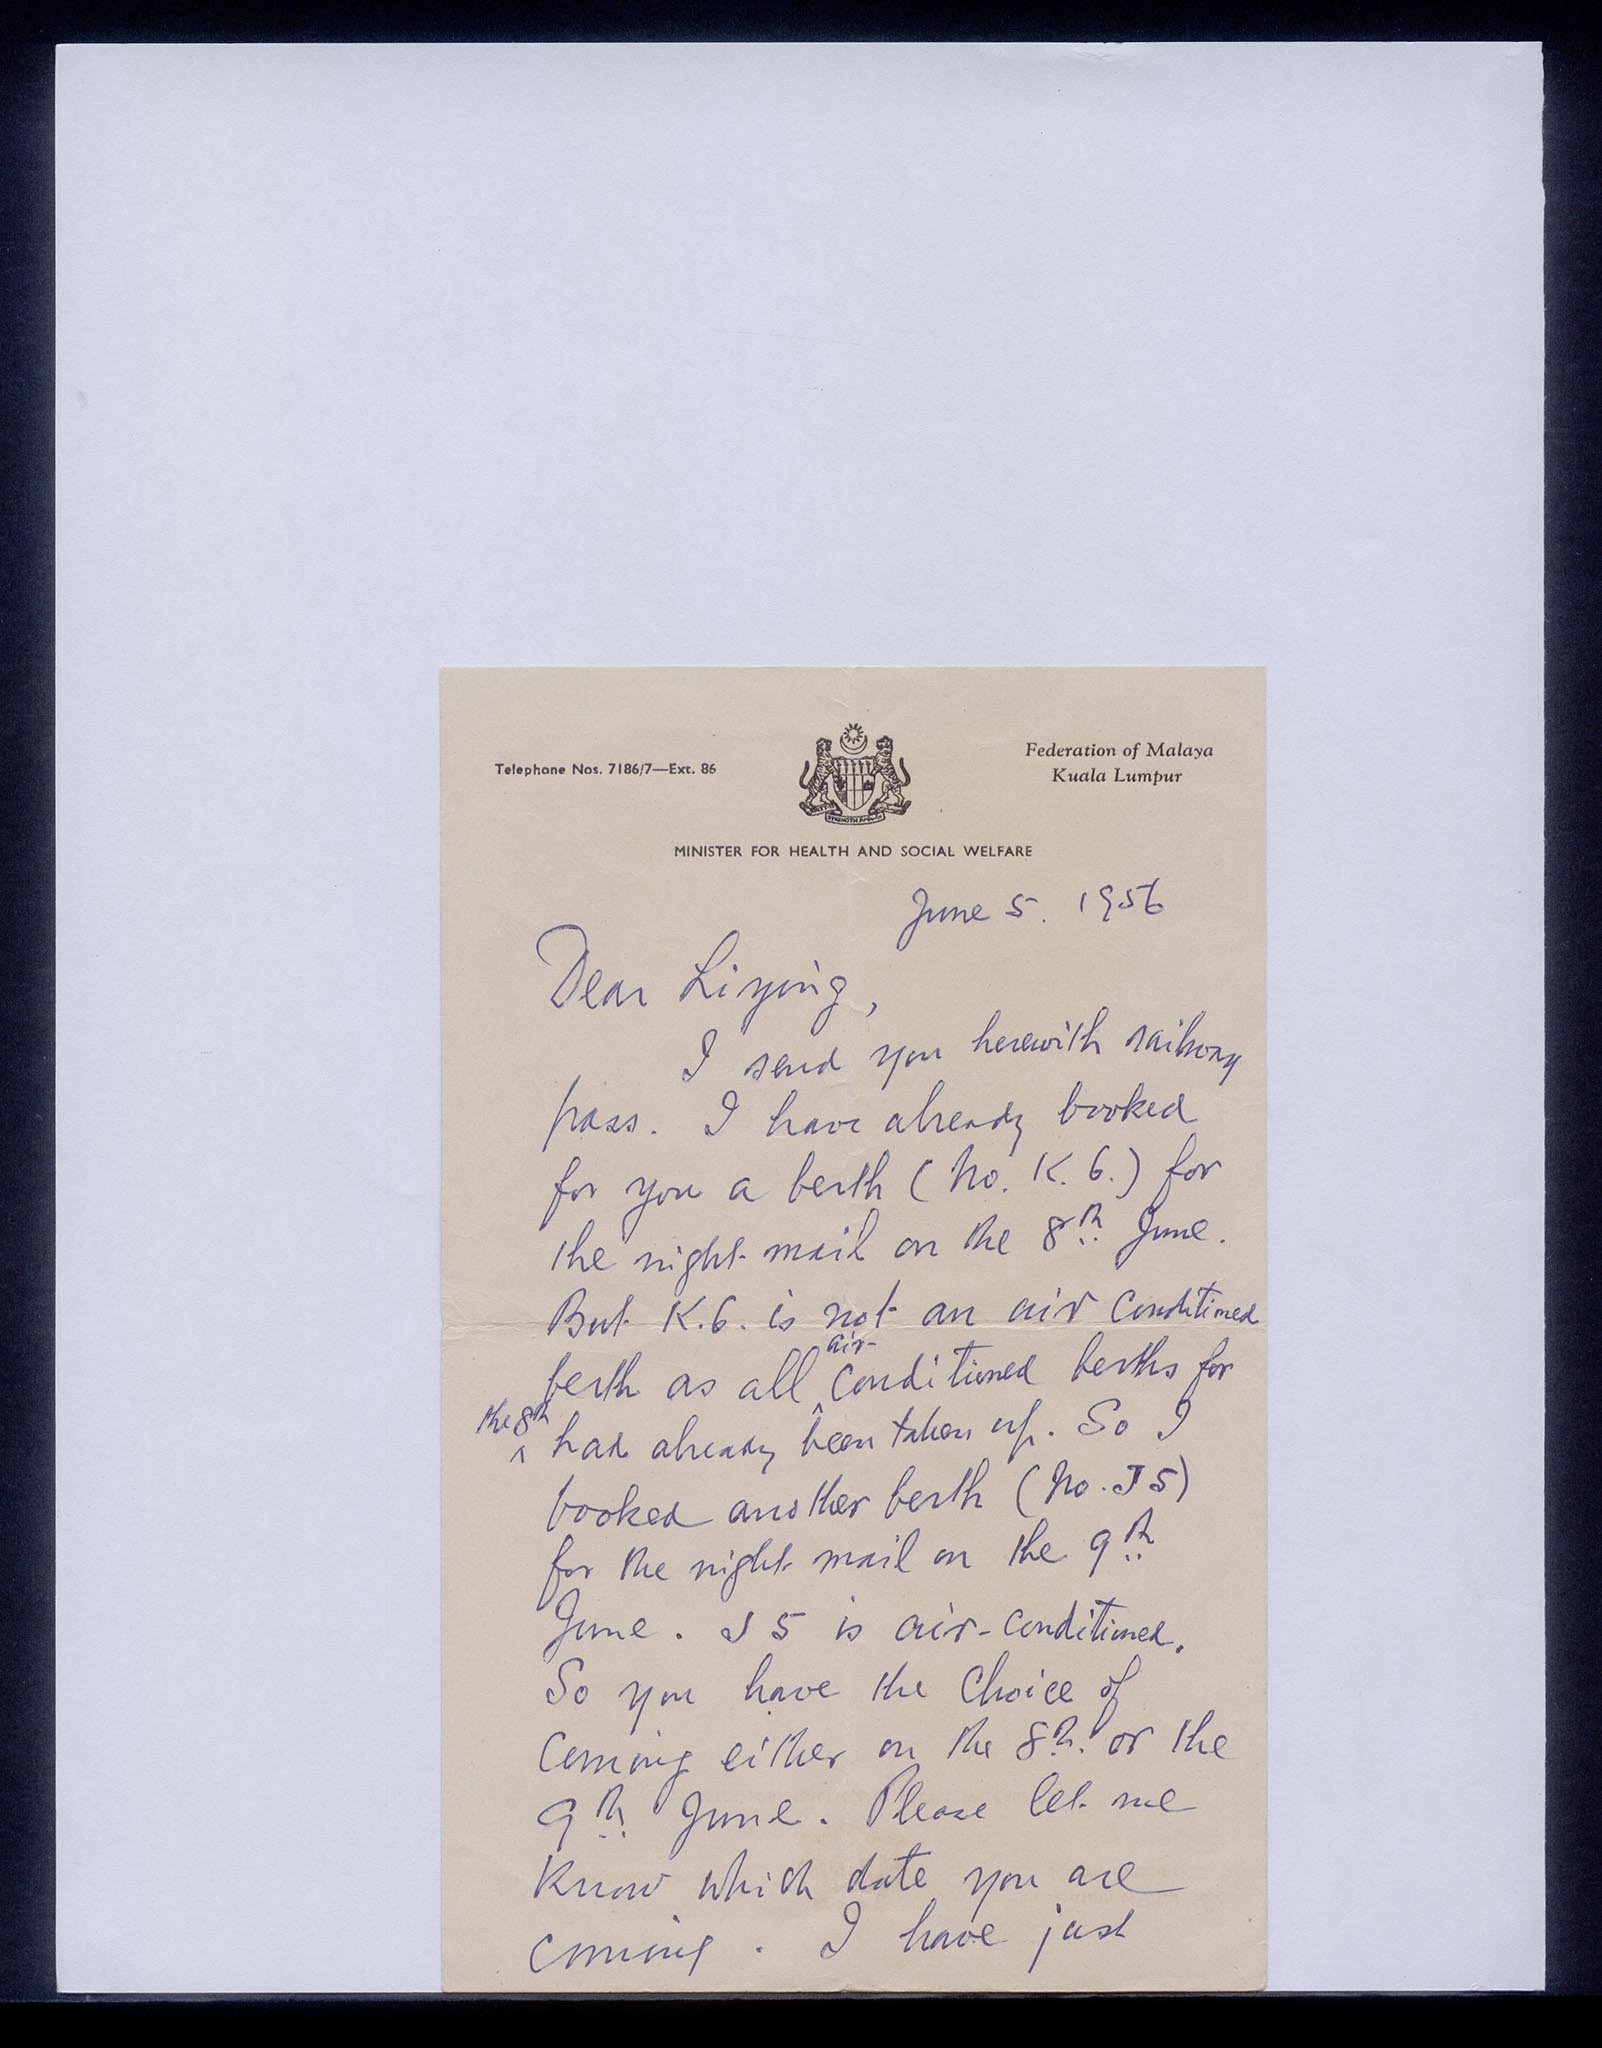 Telephone Nos. 7186/7—Ext. 86
Federation of Malaya
Kuala Lumpur
MINISTER FOR HEALTH AND SOCIAL WELFARE
June 5. 1956
Dear Liying,
I send you herewith railway
pass. I have already booked
for you a berth (No. K. 6.) for
the night mail on the 8th June.
But K.6. is not an air conditioned
berth as all air-conditioned berths for
the 8th had already been taken up. So I
booked another berth (No. J5)
for the night mail on the 9th
June. J5 is air-conditioned.
So you have the choice of
coming either on the 8th. or the
9th June. Please let me
know which date you are
coming. I have just